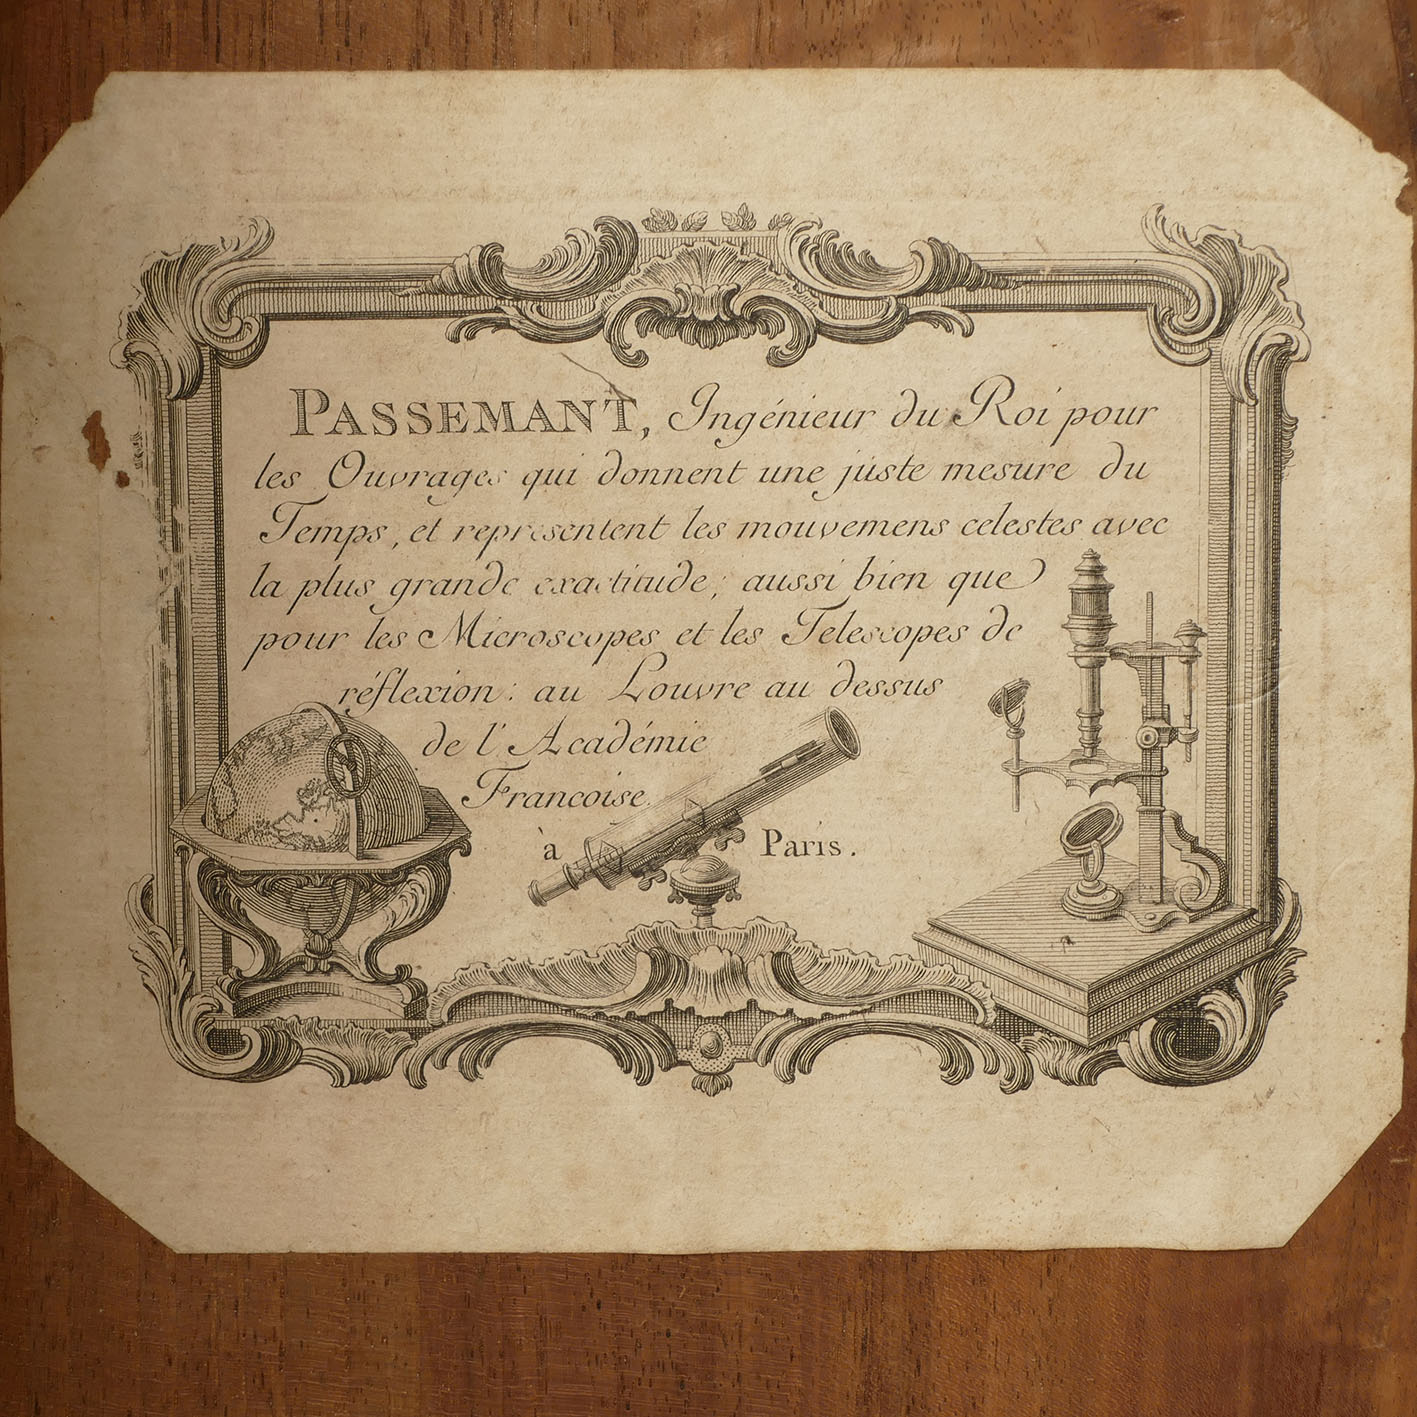 PASSEMANT, Ingénieur du Roi pour
les Ouvrages qui donnent une juste mesure du
Temps, et representent les mouvemens celestes avec
la plus grande exactitude; aussi bien que
pour les Microscopes et les Telescopes de
réflexion: au Louvre au dessus
de l'Académie
Francoise.
à Paris.